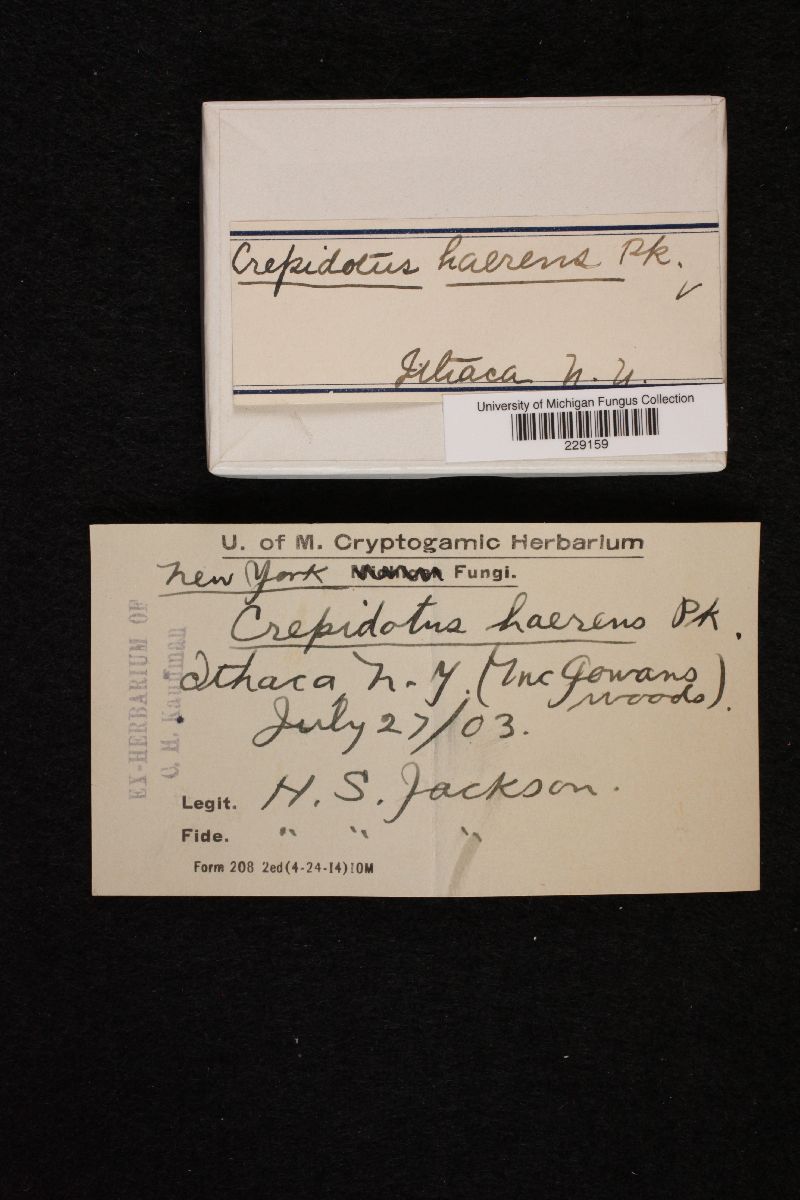 Crepidotus haerens Pk.
Ithaca N. Y.
University of Michigan Fungus Collection
229159
U. of M. Cryptogamic Herbarium
New York Michigan Fungi.
Crepidotus haerens Pk.
Ithaca, N. Y. (McGowans woods).
July 27/03.
Legit. H. S. Jackson.
Fide. " " "
Form 208 2ed(4-24-14)10M
EX-HERBARIUM OF
C. H. Kauffman